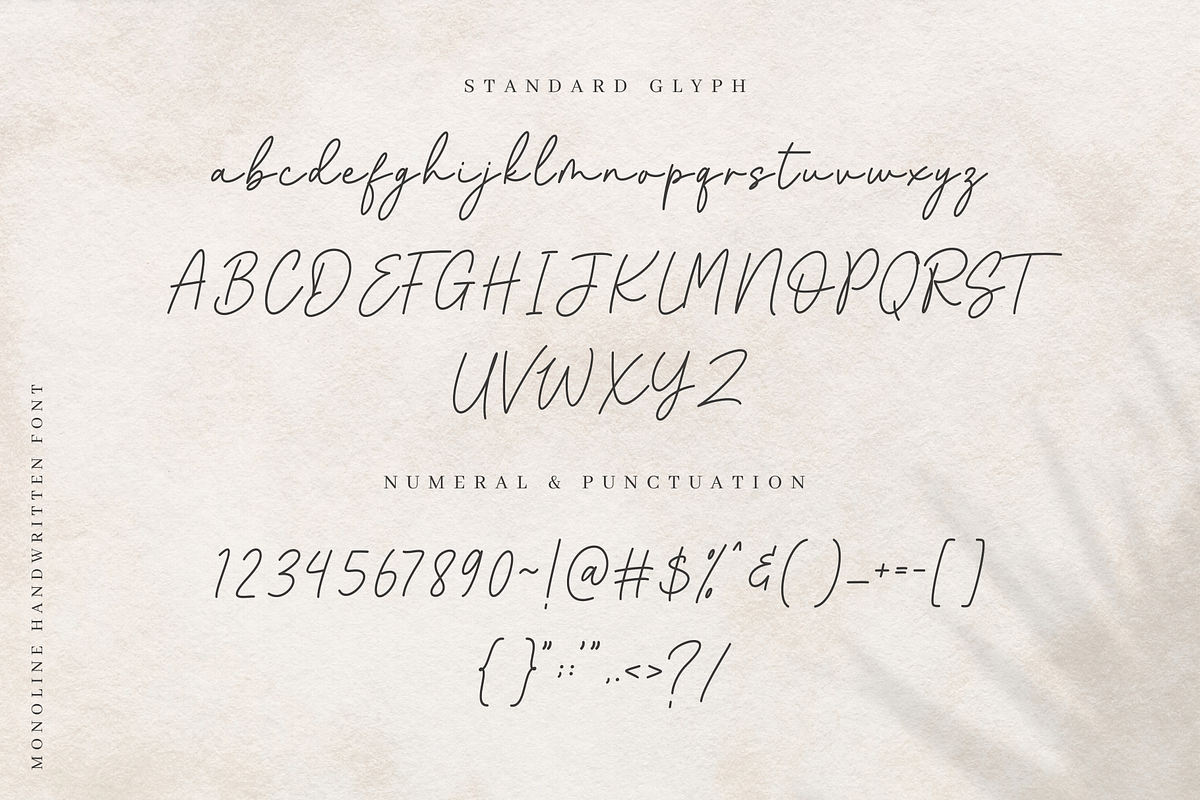 STANDARD GLYPH
abcdefghijklmnopqrstuvwxyz
ABCDEFGHIJKLMNOPQRST
UVWXYZ
NUMERAL & PUNCTUATION
1234567890~!@#$%^&( )_+=-[ ]
{ }";:'",.<>?/
MONOLINE HANDWRITTEN FONT